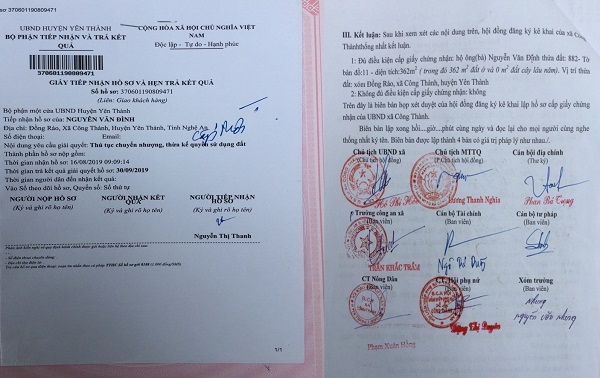 số 370601190809471
UBND HUYỆN YÊN THÀNH
BỘ PHẬN TIẾP NHẬN VÀ TRẢ KẾT QUẢ
CỘNG HÒA XÃ HỘI CHỦ NGHĨA VIỆT NAM
Độc lập - Tự do - Hạnh phúc
370601190809471
GIẤY TIẾP NHẬN HỒ SƠ VÀ HẸN TRẢ KẾT QUẢ
Số hồ sơ: 370601190809471
(Liên: Giao khách hàng)
Bộ phận một cửa UBND Huyện Yên Thành
Tiếp nhận hồ sơ của: NGUYỄN VĂN ĐÌNH
Địa chỉ: Đồng Rào, Xã Công Thành, Huyện Yên Thành, Tỉnh Nghệ An
Số điện thoại: Email:
Nội dung yêu cầu giải quyết: Thủ tục chuyển nhượng, thừa kế quyền sử dụng đất
Thành phần hồ sơ nộp gồm:
Thời gian nhận hồ sơ: 16/08/2019 09:09:14
Thời gian trả kết quả giải quyết hồ sơ: 30/09/2019
Thời gian người dân đến nhận kết quả:
Vào Sổ theo dõi hồ sơ, Quyển số: Số thứ tự
NGƯỜI NỘP HỒ SƠ
(Ký và ghi rõ họ tên)
NGƯỜI NHẬN KẾT QUẢ
(Ký và ghi rõ họ tên)
NGƯỜI TIẾP NHẬN HỒ SƠ
(Ký và ghi rõ họ tên)
Nguyễn Thị Thanh
1/1
III. Kết luận: Sau khi xem xét các nội dung trên, hội đồng đăng ký kê khai của xã Công
Thànhthống nhất kết luận.
1: Đủ điều kiện cấp giấy chứng nhận: hộ ông(bà) Nguyễn Văn Định thửa: 882- Tờ
bản đồ:11 - diện tích:362m² ( trong đó 362 m² đất ở và 0 m² đất cây lâu năm). Vị trí thửa
đất: xóm Đồng Rào, xã Công Thành, huyện Yên Thành
2: Không đủ điều kiện cấp giấy chứng nhận: không
Trên đây là biên bản họp xét duyệt của hội đồng đăng ký kê khai lập hồ sơ cấp giấy chứng
nhận của UBND xã Công Thành.
Biên bản lập xong hồi....giờ...phút cùng ngày và đọc lại cho mọi người cùng nghe
thống nhất ký tên. Biên bản được lập thành 4 bản có giá trị pháp lý như nhau/.
Chủ tịch UBND xã
(Chủ tịch hội đồng)
Chủ tịch MTTQ
(P.Chủ tịch hội đồng)
Cán bộ địa chính
(Thư ký)
Hương Thanh Nghĩa
Phan Bá Trọng
Trưởng công an xã
Cán bộ Tài chính
(Ban viên)
Cán bộ tư pháp
(Ban viên)
TRẦN KHẮC TRÂM
CT Nông Dân
(Ban viên)
CT Hội phụ nữ
(Ban viên)
Xóm trưởng
(Ban viên)
Phạm Xuân Hồng